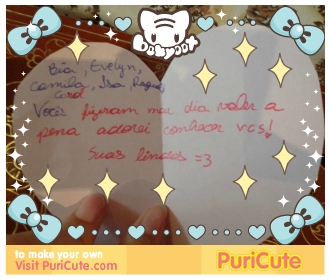 Babypot
Bia, Evelyn,
Camila, Isa, Raquel,
Carol
Vocês fizeram meu dia valer a
pena adorei conhecer vcs!
Suas lindas =3
to make your own
Visit PuriCute.com
PuriCute